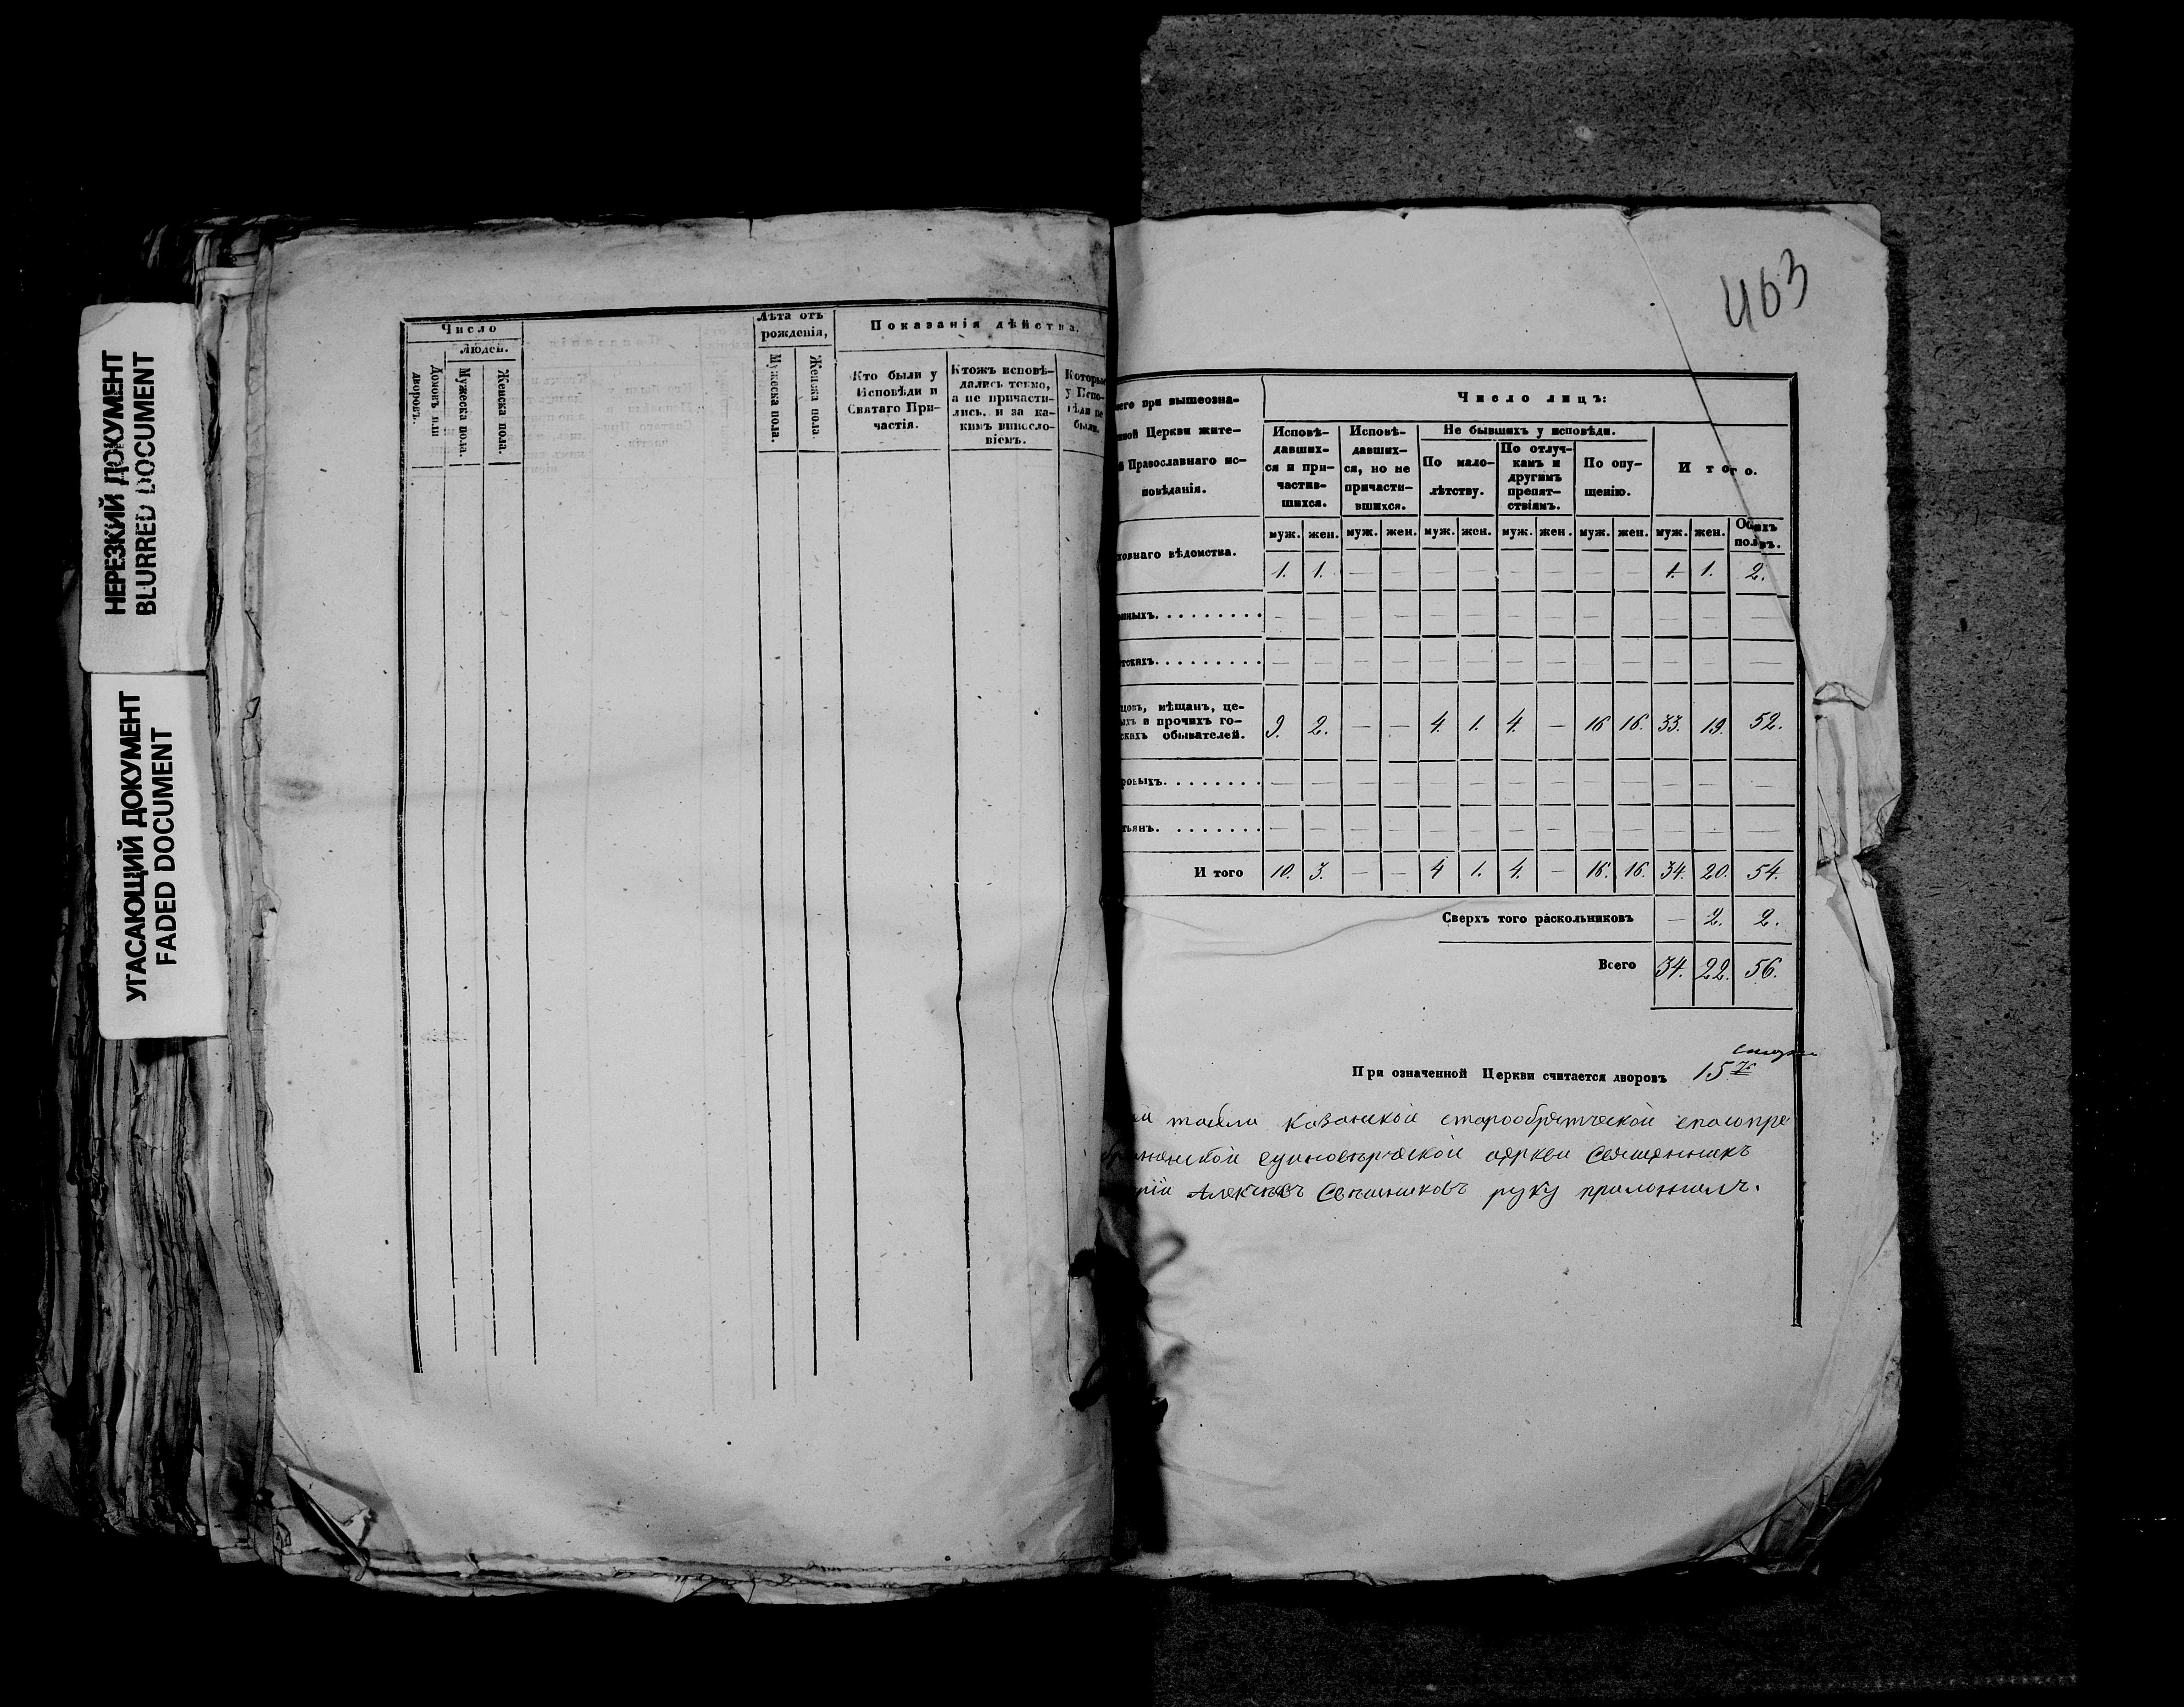 НЕРЕЗКИЙ ДОКУМЕНТ
BLURRED DOCUMENT
УГАСАЮЩИЙ ДОКУМЕНТ
FADED DOCUMENT
Число
Людей.
Домовъ или дворовъ.
Мужеска пола.
Женска пола.
Лѣта отъ рожденія,
Мужеска пола.
Женска пола
Показанія дѣйства.
Кто были у
Исповѣди и
Святаго При-
частія.
Ктожъ исповѣ-
дались токмо,
а не причасти-
лись, и за ка-
кимъ винословіемъ.
Которые
у Испо-
вѣди не
были.
463
его при вышеозна-
ной Церкви жите-
й Православнаго ис-
повѣданія.
Число лицъ:
Исповѣ-
давших-
ся и при-
частив-
шихся.
Исповѣ-
давших-
ся, но не
причасти-
вшихся.
Не бывшихъ у исповѣди.
По мало-
лѣтству.
По отлуч-
камъ и
другимъ
препят-
ствіямъ.
По опу-
щенію.
Итого.
муж. жен. муж. жен. муж. жен. муж. жен. муж. жен. муж. жен. Обоихъ половъ.
овнаго вѣдомства.
1. 1. — — — — — — — — 1. 1. 2.
нныхъ. — — — — — — — — — — — — —
тскихъ. — — — — — — — — — — — — —
цовъ, мѣщанъ, це-
ыхъ и прочихъ го-
скихъ обывателей.
9. 2. — — 4. 1. 4. — 16 16. 33. 19. 52.
ровыхъ. — — — — — — — — — — — — —
тьянъ. — — — — — — — — — — — — —
И того 10. 3. — — 4 1. 4. — 16. 16. 34. 20. 54.
Сверхъ того раскольниковъ — 2. 2.
Всего 34. 22. 56.
При означенной Церкви считается дворовъ 15
Казанской старообрятческой спасопре
единовѣрческой церкви Священникъ
Алексѣевъ Свѣшниковъ руку приложилъ.